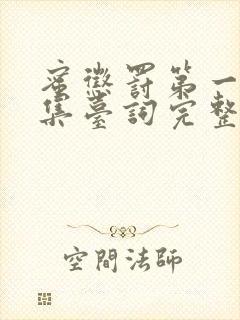 蜜懲罰第一
集臺詞完整
空間法師